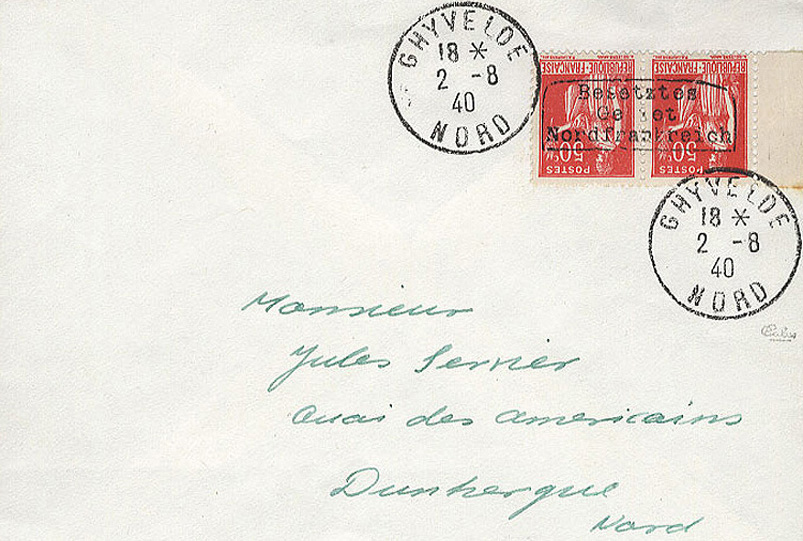 GHYVELDE
18 *
2 -8
40
NORD
REPUBLIQUE-FRANÇAISE
REPUBLIQUE-FRANÇAISE
Besetztes
Gebiet
Nordfrankreich
50c
50c
POSTES
POSTES
GHYVELDE
18 *
2 -8
40
NORD
Monsieur
Jules Serrier
Quai des Americains
Dunkerque
Nord